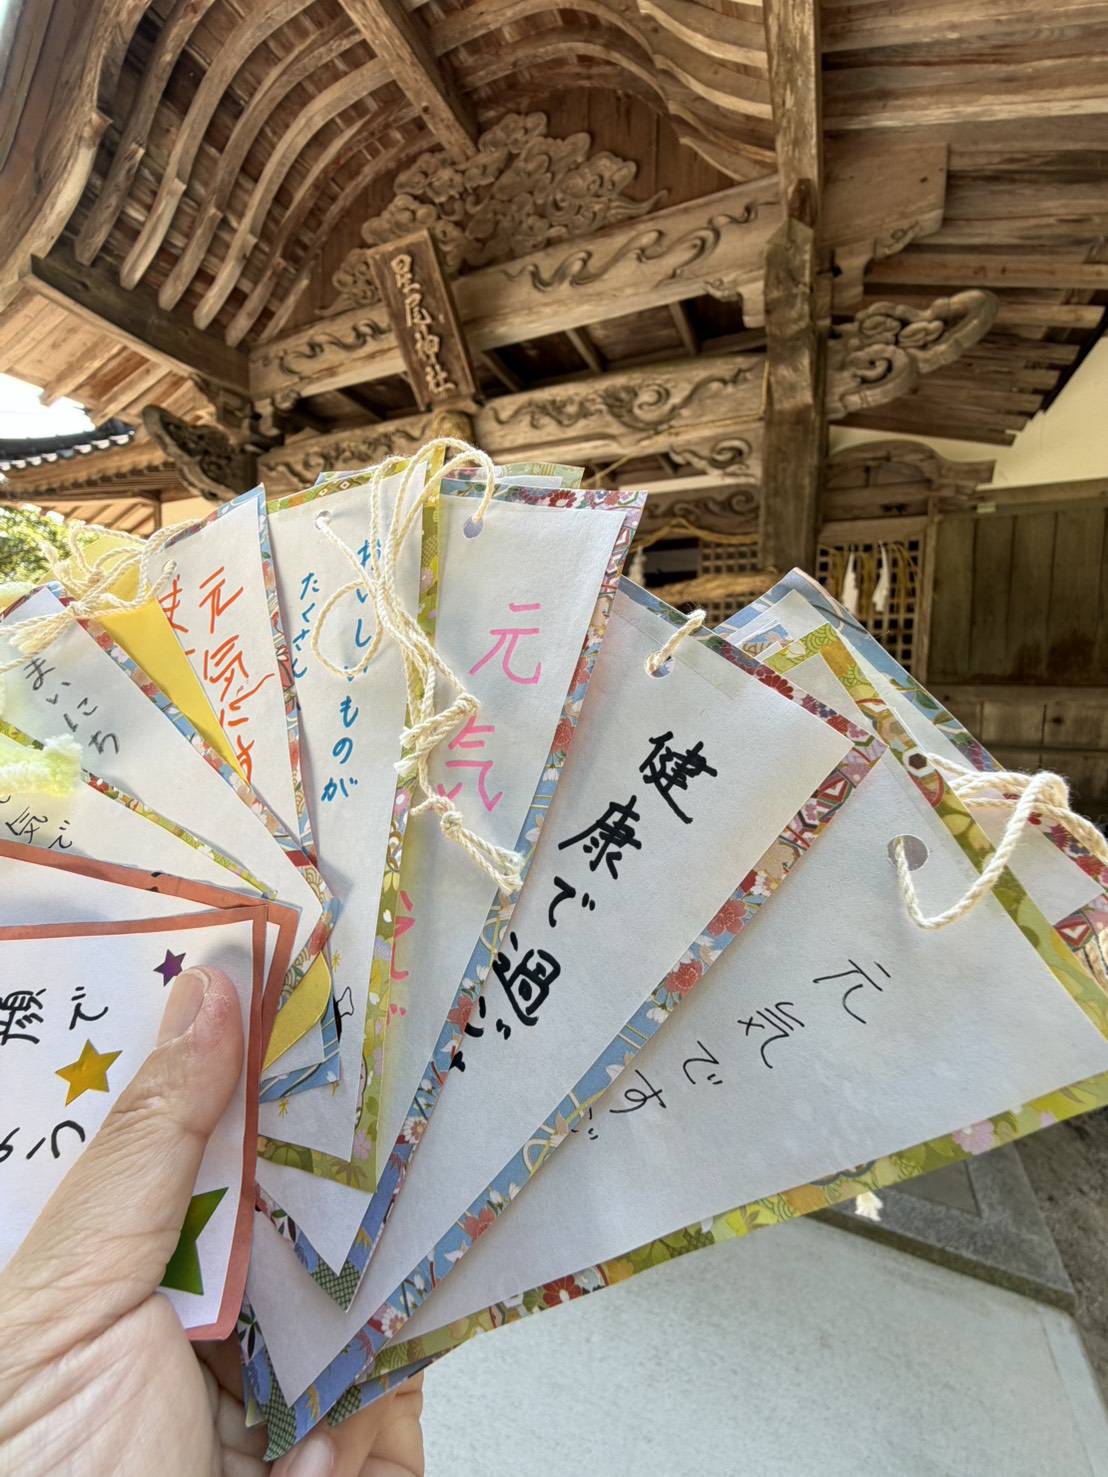 星尾神社
元気です
健康で過ご
元気
おいしいものが
たくさん
元気に
まいにち
気で
顔で